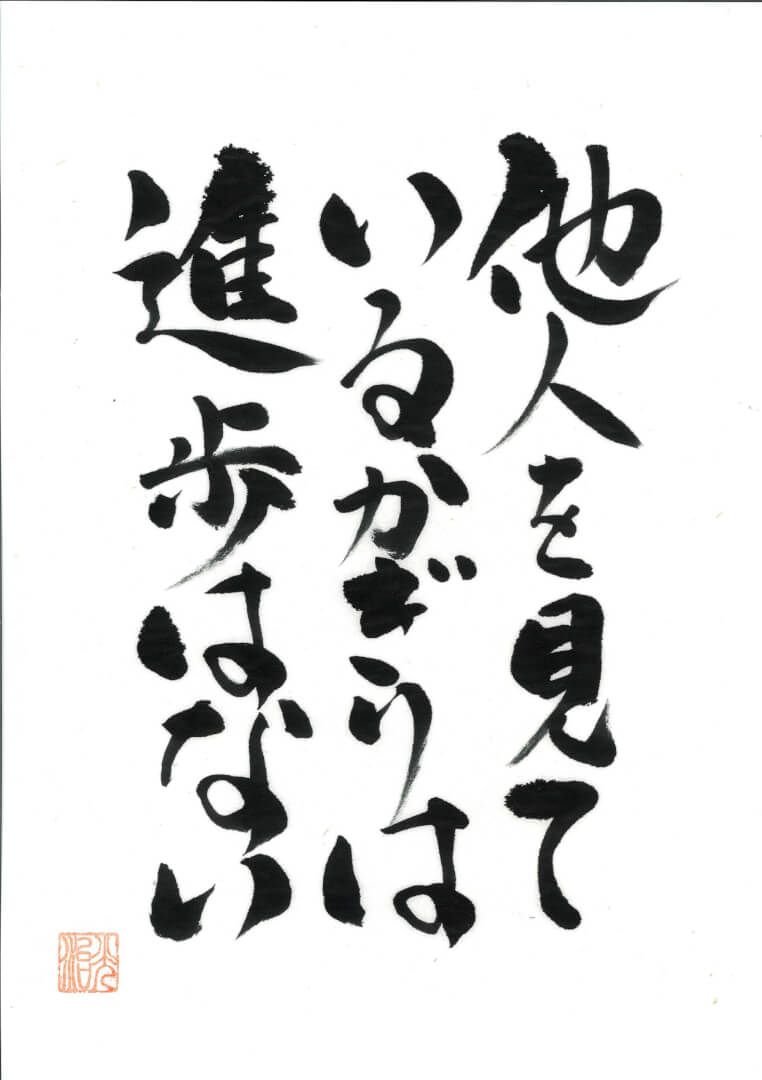 他人を見て
いるかぎりは
進歩はない